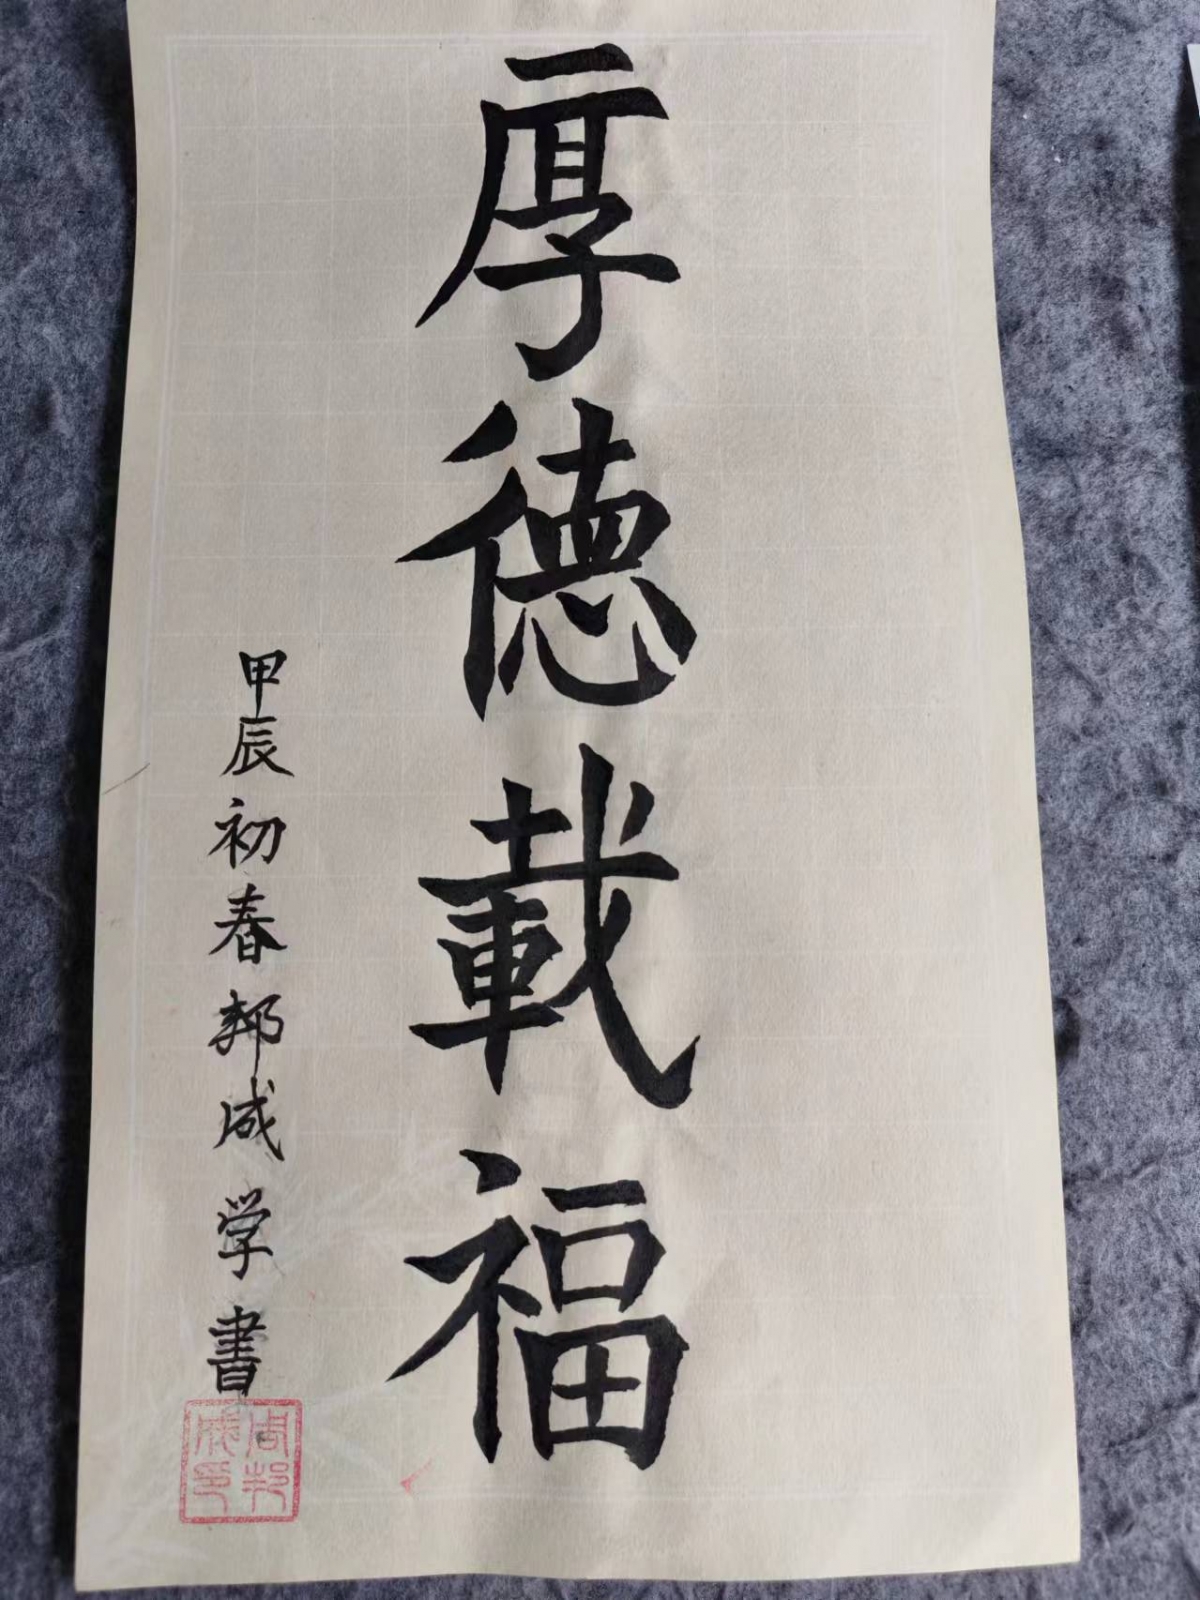 厚德載福
甲辰初春邦成学書
周邦成印